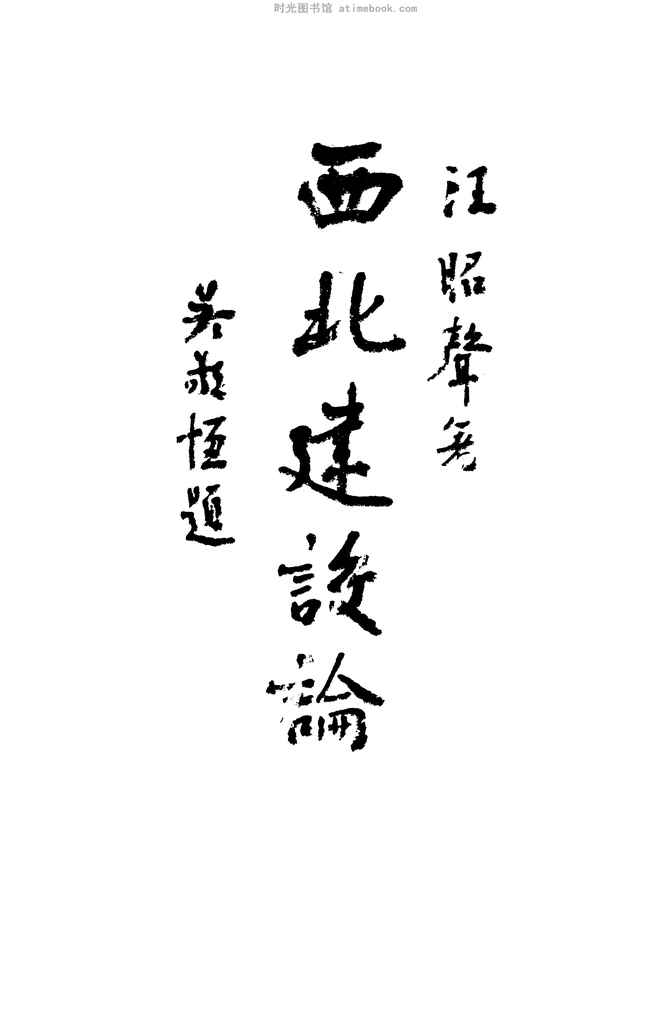 时光图书馆 atimebook.com
汪昭聲著
西北建設論
吳敬恒題